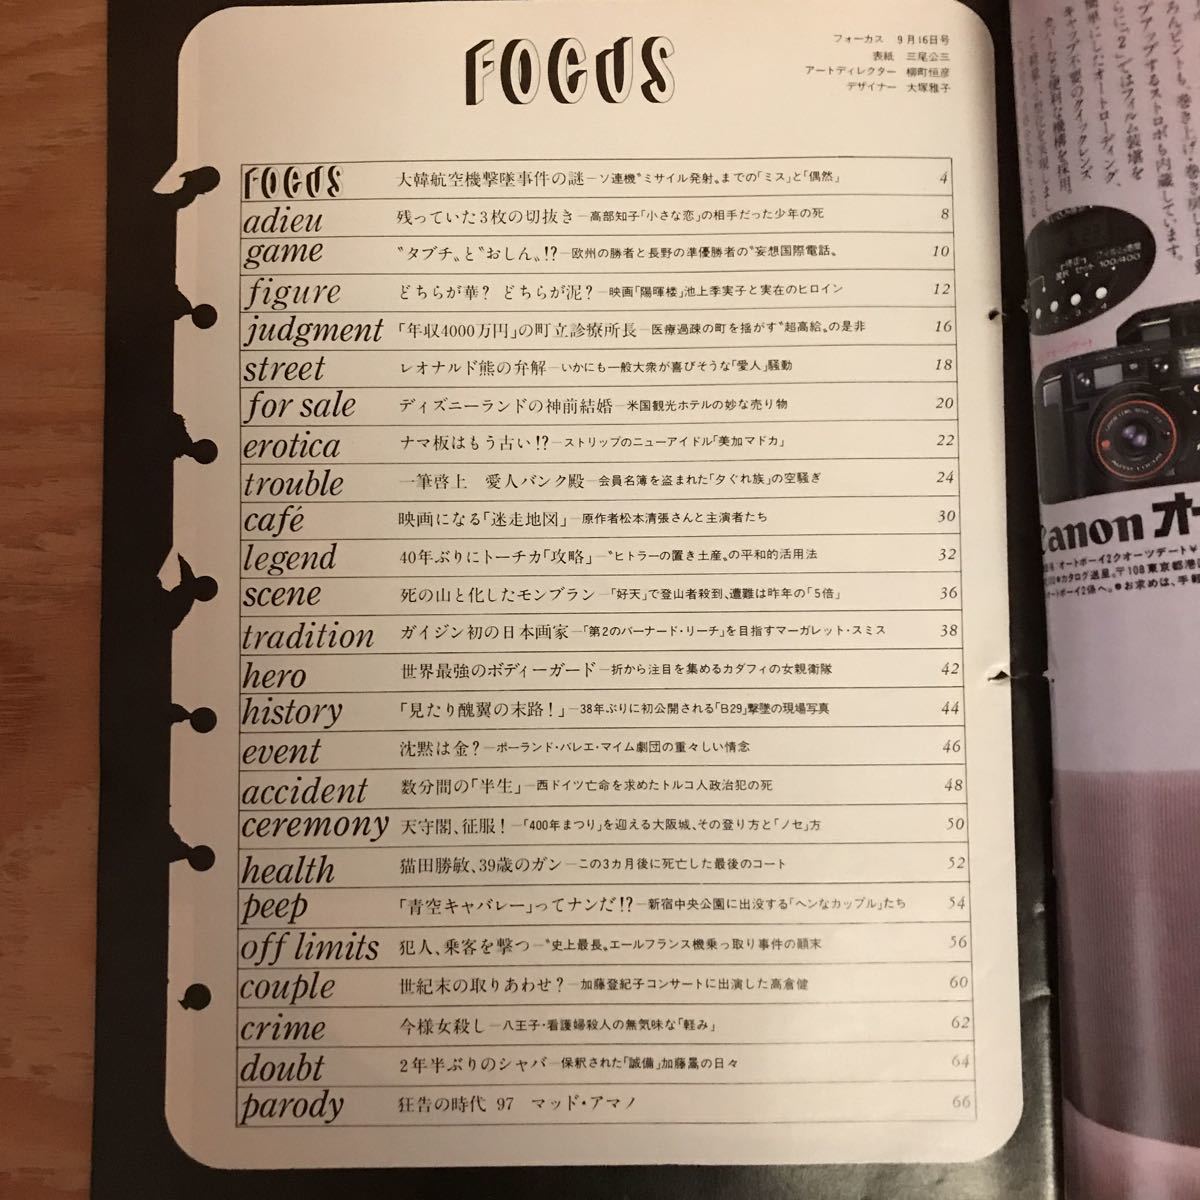 FOCUS
フォーカス 9月16日号
表紙 三尾公三
アートディレクター 柳町恒彦
デザイナー 大塚雅子
FOCUS 大韓航空機撃墜事件の謎―ソ連機〝ミサイル発射〟までの「ミス」と「偶然」 4
adieu 残っていた3枚の切抜き―高部知子「小さな恋」の相手だった少年の死 8
game 〝タブチ〟と〝おしん〟!?―欧州の勝者と長野の準優勝者の〝妄想国際電話〟 10
figure どちらが華? どちらが泥?―映画「陽暉楼」池上季実子と実在のヒロイン 12
judgment 「年収4000万円」の町立診療所長―医療過疎の町を揺がす〝超高給〟の是非 16
street レオナルド熊の弁解―いかにも一般大衆が喜びそうな「愛人」騒動 18
for sale ディズニーランドの神前結婚―米国観光ホテルの妙な売り物 20
erotica ナマ板はもう古い!?―ストリップのニューアイドル「美加マドカ」 22
trouble 一筆啓上 愛人バンク殿―会員名簿を盗まれた「夕ぐれ族」の空騒ぎ 24
café 映画になる「迷走地図」―原作者松本清張さんと主演者たち 30
legend 40年ぶりにトーチカ「攻略」―〝ヒトラーの置き土産〟の平和的活用法 32
scene 死の山と化したモンブラン―「好天」で登山者殺到、遭難は昨年の「5倍」 36
tradition ガイジン初の日本画家―「第2のバーナード・リーチ」を目指すマーガレット・スミス 38
hero 世界最強のボディーガード―折から注目を集めるカダフィの女親衛隊 42
history 「見たり醜翼の末路!」―38年ぶりに初公開される「B29」撃墜の現場写真 44
event 沈黙は金?―ポーランド・バレエ・マイム劇団の重々しい情念 46
accident 数分間の「半生」―西ドイツ亡命を求めたトルコ人政治犯の死 48
ceremony 天守閣、征服!―「400年まつり」を迎える大阪城、その登り方と「ノセ」方 50
health 猫田勝敏、39歳のガン―この3カ月後に死亡した最後のコート 52
peep 「青空キャバレー」ってナンだ!?―新宿中央公園に出没する「ヘンなカップル」たち 54
off limits 犯人、乗客を撃つ―〝史上最長〟エールフランス機乗っ取り事件の顛末 56
couple 世紀末の取りあわせ?―加藤登紀子コンサートに出演した高倉健 60
crime 今様女殺し―八王子・看護婦殺人の無気味な「軽み」 62
doubt 2年半ぶりのシャバ―保釈された「誠備」加藤暠の日々 64
parody 狂告の時代 97 マッド・アマノ 66
プアップするストロボも内蔵しています。
らに「2」ではフィルム装塡を
簡単にしたオートローディング、
キャップ不要のクイックレンズ
カバーなど便利な機構を採用。
100/400
Canon オー
オートボーイ2クオーツデート¥
カタログ送呈。〒108東京都港
オートボーイ2係へ。●お求めは、手軽